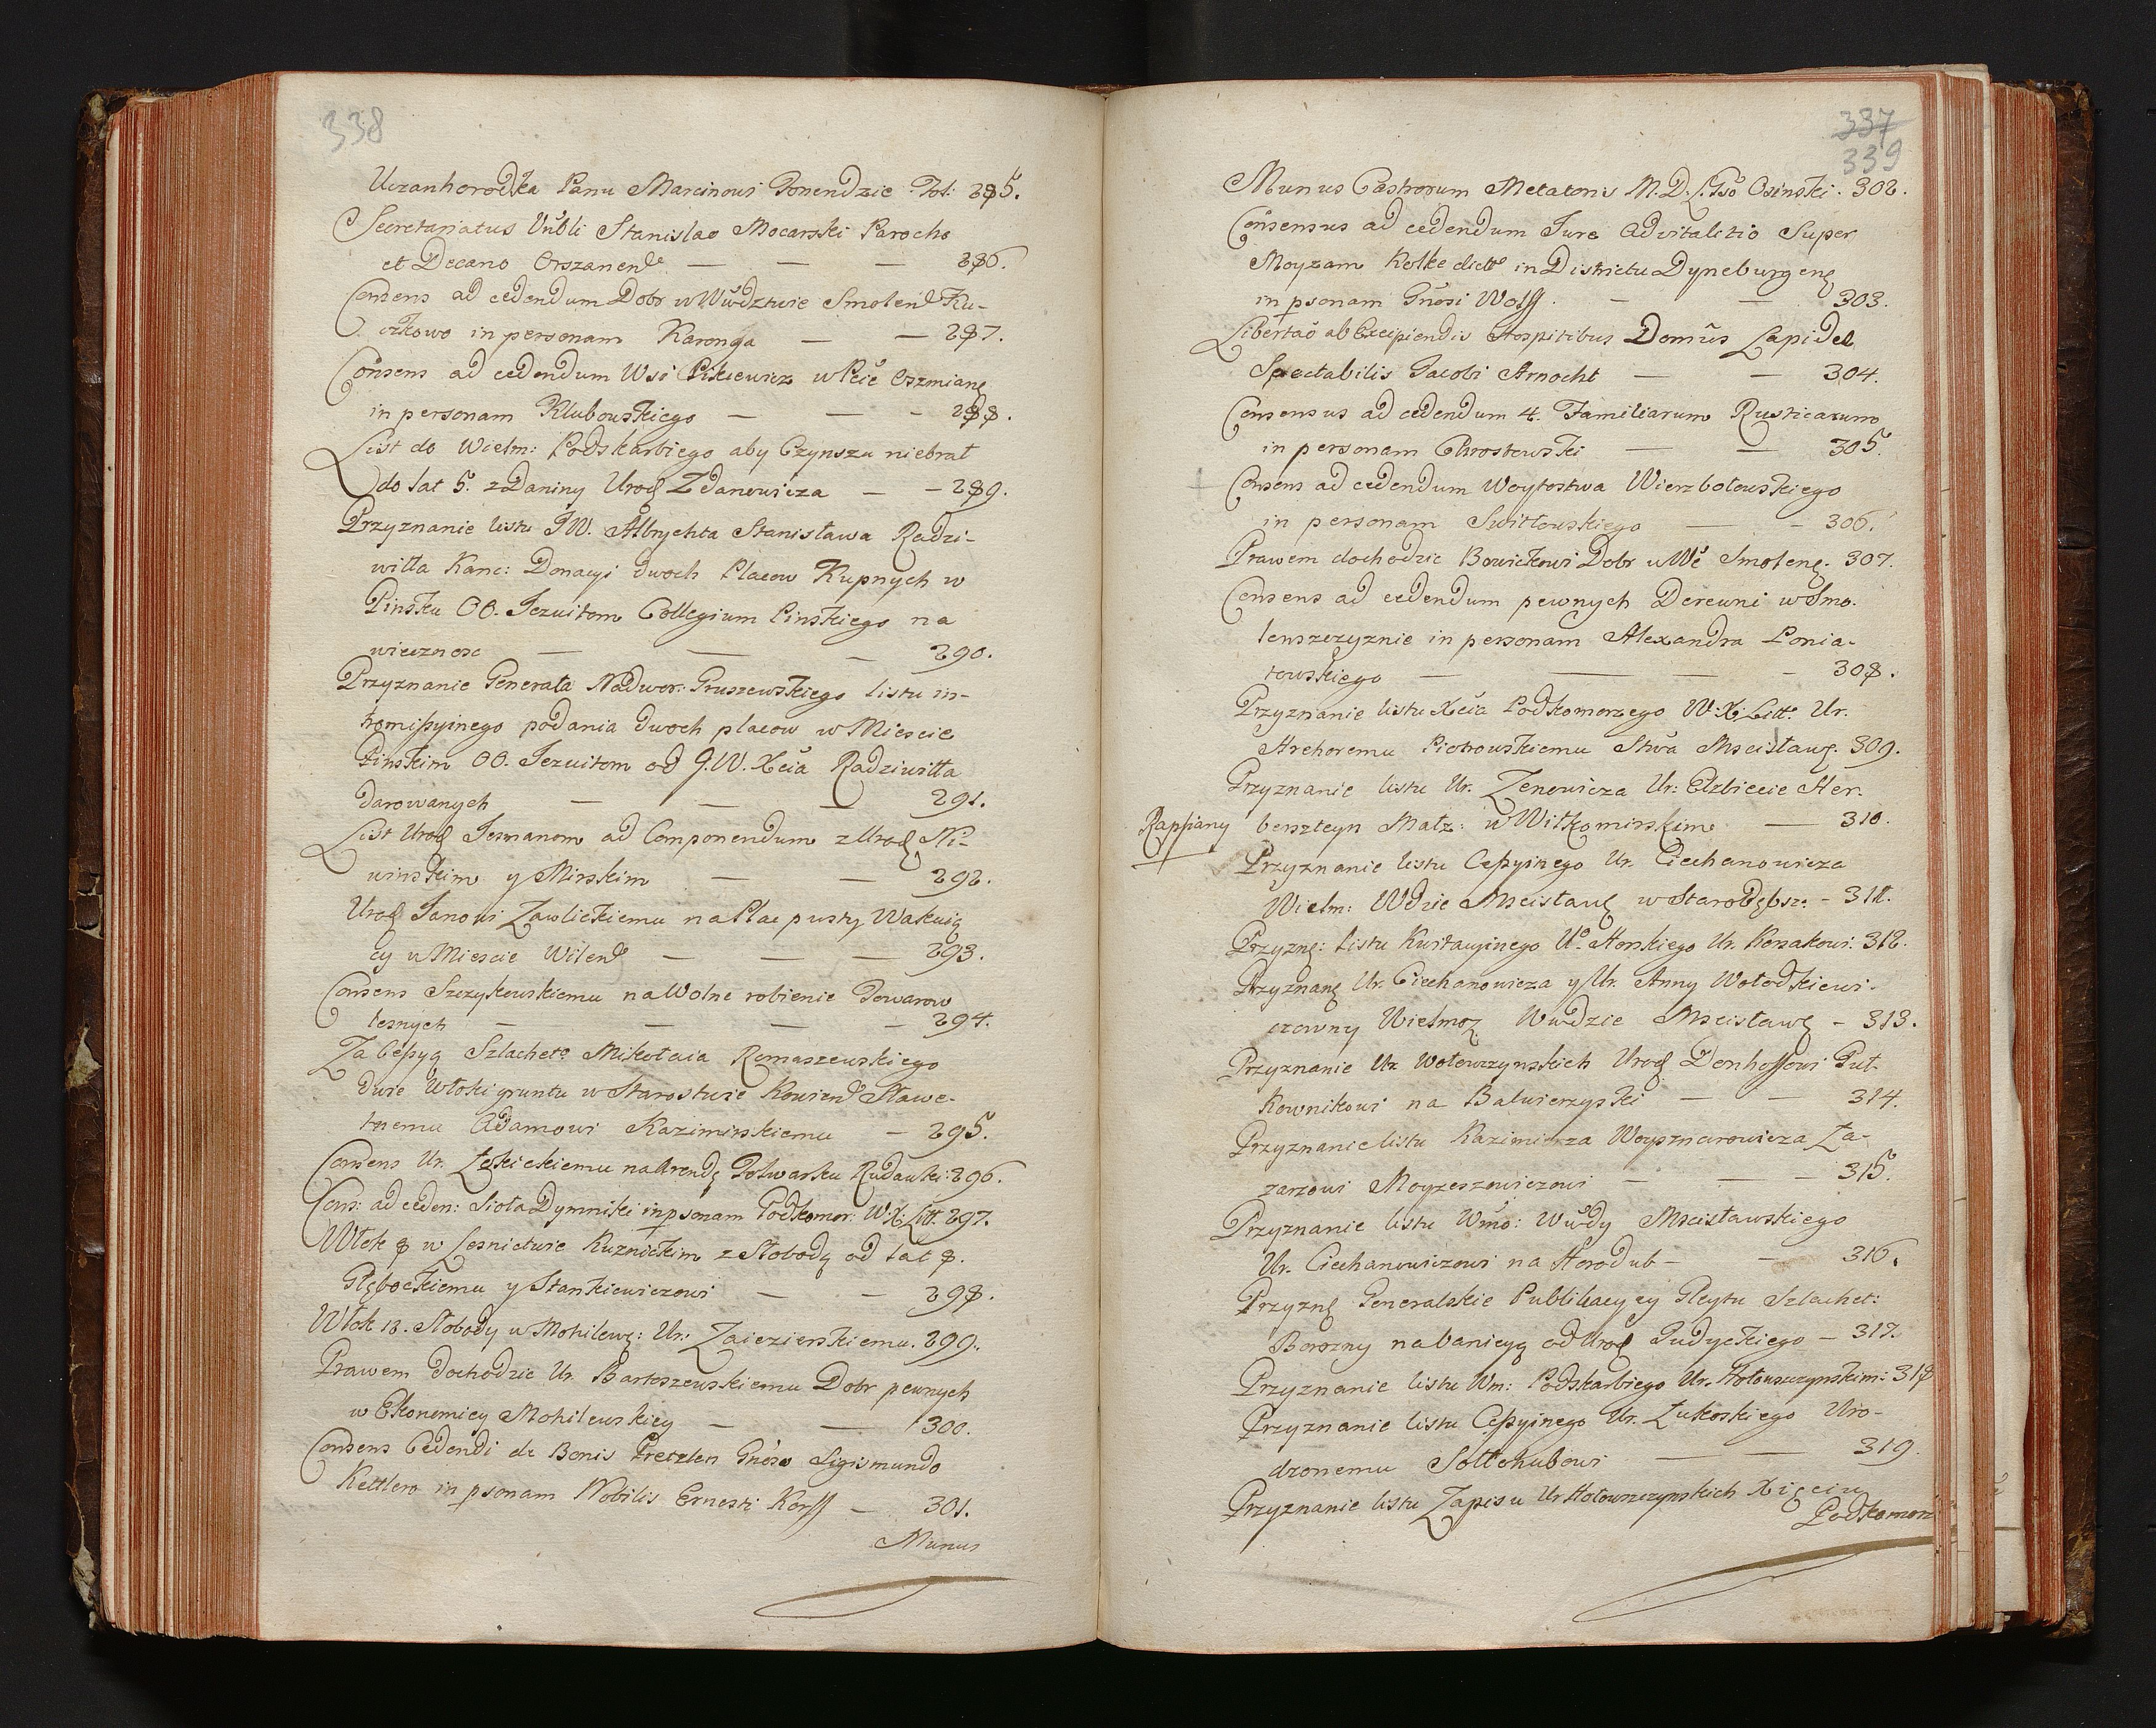 338
Uczanhorodka Panu Marcinowi Ponendzie Fol: 285.
Secretariatus Vnbli Stanislao Mocarski Parocho
et Decano Orszanen — — — 286.
Consens ad cedendum Dobr w Wwdztwie Smolen Ku-
czkowo in personam Karonga — — 287.
Consens ad cedendum Wsi Pikiewicz w Pcie Oszmian
in personam Klubowskiego — — - 288.
List do Wielm: Podskarbiego aby Czynszu niebrał
do lat 5. z Daniny Urod Zdanowicza — - 289.
Przyznanie listu JW. Albrychta Stanisława Radzi-
wiłła Kanc: Donacyi dwoch Placow Kupnych w
Pinsku OO. Jezuitom Collegium Pinskiego na
wiecznosc — — — 290.
Przyznanie Generała Nadwor: Gruszewskiego listu in-
tromissyinego podania dwoch placow w Miescie
Pinskim OO. Jezuitom od J.W. Xcia Radziwiłła
darowanych — — — 291.
List Urod Jesmanom ad Componendum z Urod Ni-
winskim y Mirskim — — 292.
Urod Janowi Zawlickiemu na Plac pusty Wakuią
cy w Miescie Wilen — — — 293.
Consens Szczykowskiemu na Wolne robienie Towarow
lesnych — — — - 294.
Za Cessyą Szlachet: Mikołaia Romaszewskiego
dwie Włoki gruntu w Starostwie Kowien Sławe-
tnemu Adamowi Kazimirskiemu — 295.
Consens Ur. Łękickiemu na Arendę Folwarku Rudawki: 296.
Cons: ad ceden: Sioła Dymniki in psonam Podkomor: W.X. Litt. 297.
Włok 8 w Lesnictwie Kuznickim z Słobodą od lat 8.
Głębockiemu y Stankiewiczowi — — 298.
Włok 13. Słobody w Mohilew: Ur: Zaiezierskiemu. 299.
Prawem dochodzic Ur. Bartoszewskiemu Dobr pewnych
w Ekonomiey Mohilewskiey — — 300.
Consens Cedendi de Bonis Pretzlen Gnoso Sigismundo
Kettlero in psonam Nobilis Ernesti Korff — 301.
Munus
337
339
Munus Castrorum Metatoris M.D.L. Gso Osinski. 302.
Consensus ad cedendum Jure Advitalitio Super
Moyzam Kolke dict in Districtu Dyneburgen
in psonam Gnosi Wolff. — — 303.
Libertao ab Excipiendis Hospitibus Domus Lapidea
Spectabilis Jacobi Arnocht — — 304.
Consensus ad cedendum 4. Familiarum Rusticarum
in personam Chrostowski — — 305.
Consens ad cedendum Woytostwa Wierzbołowskiego
in personam Switłowskiego — - 306.
Prawem dochodzic Bowickowi Dobr w Wc Smolen. 307.
Consens ad cedendum pewnych Derewni w Smo-
lenszczyznie in personam Alexandra Ponia-
towskiego — — — - 308.
Przyznanie listu Xcia Podkomorzego W. X. Litt. Ur.
Hrehoremu Piotrowskiemu Stwa Mscisław. 309.
Przyznanie listu Ur. Zenowicza Ur: Elzbiecie Her-
Rapssany berszteyn Małz: w Wiłkomirskim — 310.
Przyznanie listu Cessyinego Ur. Ciechanowicza
Wielm: Wdzie Mscisław w Starodębsz: - 311.
Przyzn: listu Kwitacyinego U. Horskiego Ur. Korsakowi. 312.
Przyznan Ur. Ciechanowicza y Ur. Anny Wołodkiewi-
czowny Wielmoz Wwdzie Mscisław - 313.
Przyznanie Ur Wołowczynskich Urod Denhoffowi Puł-
kownikowi na Balwierzyski — — 314.
Przyznanie listu Kazimierza Woysznarowicza Ła-
zarzowi Moyzeszowiczowi — — - 315.
Przyznanie listu Wmo: Wwdy Mscisławskiego
Ur. Ciechanowiczowi na Horodub — - 316.
Przyzn Generalskie Publikacyey Gleytu Szlachet:
Borozny na banicyą od Urod Judyckiego — 317.
Przyznanie listu Wm: Podskarbiego Ur. Hołowczynskim: 318
Przyznanie listu Cessyinego Ur. Łukoskiego Uro-
dzonemu Sołłohubowi — — 319.
Przyznanie listu Zapisu Ur Hołowczynskich Xięciu
Podkomorz